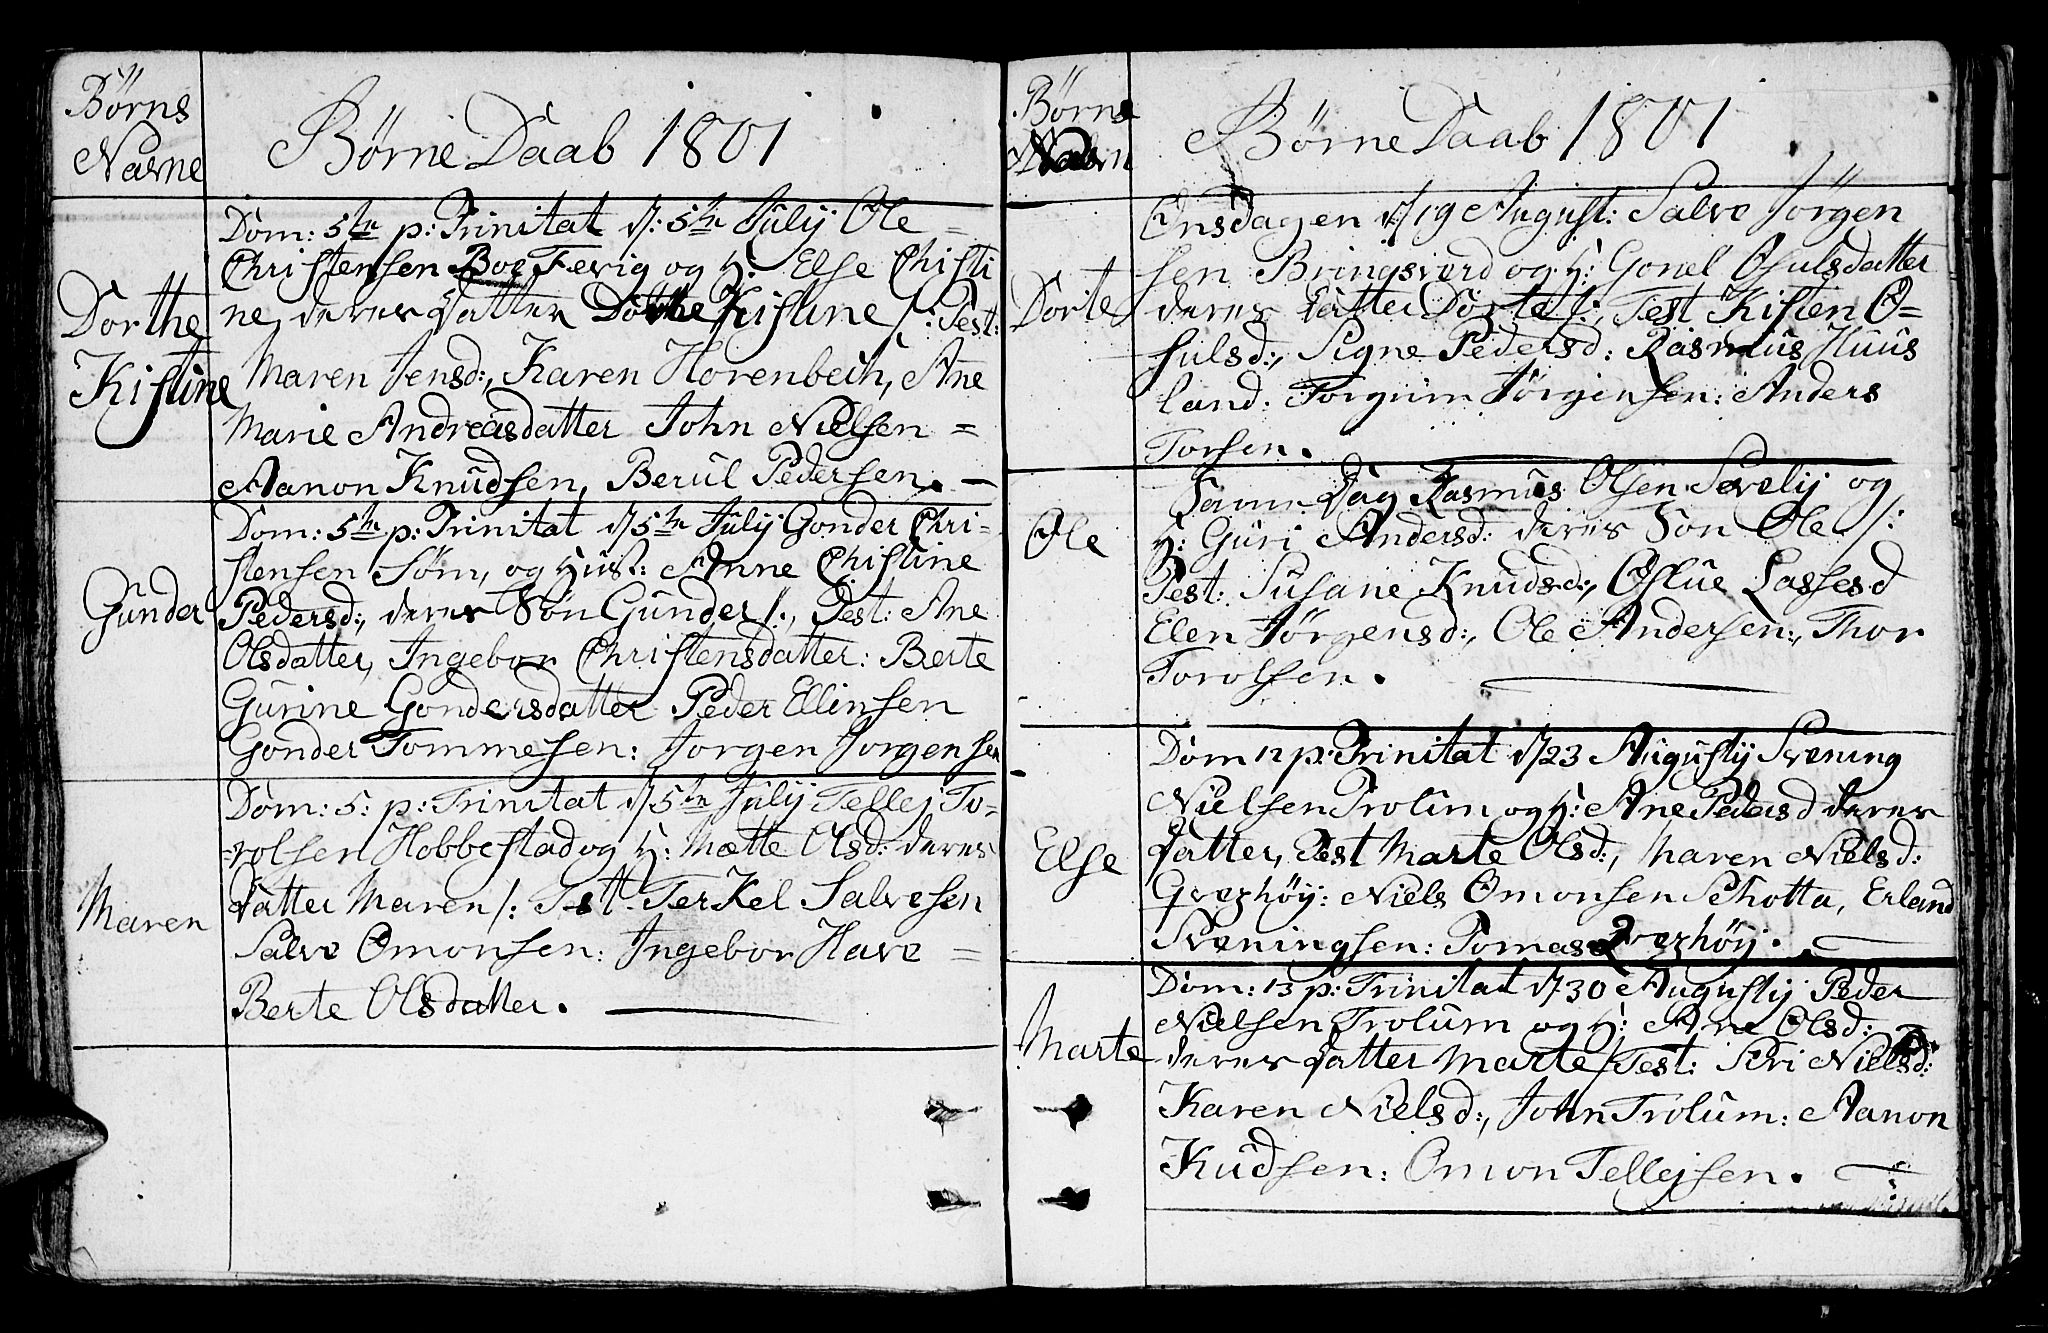 Børns
Navne
Børne Daab 1801
Dorthe
Kistine
Dom: 5te p: Trinitat d: 5te Julij Ole
Christensen Boe Fevig og H: Else Christi
ne, deres Datter Dorthe Kistine /: Test:
Maren Jensd:, Karen Horenbech, Ane
Marie Andreasdatter John Nielsen =
Aanon Knudsen, Berul Pedersen. —
Gunder
Dom: 5te p: Trinitat d 5te Julij Gonder Chri-
stensen Søm, og Hust: Anne Christine
Pedersd:, deres Søn Gunder /:, Test: Ane
Olsdatter, Ingebor Christensdatter: Berte
Gurine Gondersdatter Peder Ellinsen
Gonder Tommesen: Jorgen Jorgensen
Maren
Dom: 5: p: Trinitat d 5te Julij Tellej To-
=rolsen Hobbestad og H: Mætte Olsd: deres
Datter Maren /: Test. Terkel Salvesen
Salve Omonsen: Ingebor Have =
Berte Olsdatter. —
Børns
Navn
Børne Daab 1801
Dorte
Onsdagen d 19 August: Salve Jörgen
sen Bringsverd og H: Gonel Osulsdatter
deres Datter Dorte /:, Test Kisten O=
sulsd:, Signe Pedersd: Rasmus Huus
land: Torgum Jörgensen: Anders
Torsen.
Ole
Samme Dag Rasmus Olsen Sevelij og
H: Guri Andersd: deres Søn Ole /:
Test: Susane Knudsd:, Oslue Lassesd
Elen Jørgensd:, Ole Andersen:, Thor
Torolsen.
Else
Dom 12 p: Trinitat d 23 Augustij Svening
Nielsen Trolum og H: Ane Pedersd deres
Datter, Test Marte Olsd:, Maren Nielsd:
Qverhöy: Niels Omonsen Schotta, Erland
Sveningsen: Tomas Qverhöy. —
Marte
Dom: 13 p: Trinitat d 30 Augustij Peder
Nielsen Trolum og H: Ane Olsd:
deres Datter Marte / Test: Siri Nielsd:
Karen Nielsd:, John Trolum: Aanon
Kudsen: Omon Tellejsen. —